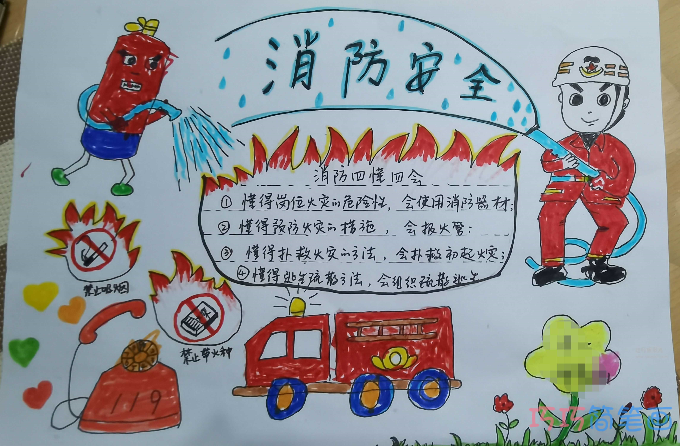 消防安全
消防四懂四会
① 懂得岗位火灾的危险性，会使用消防器材；
② 懂得预防火灾的措施，会报火警；
③ 懂得扑救火灾的方法，会扑救初起火灾；
④ 懂得逃生疏散方法，会组织疏散逃生
禁止吸烟
禁止带火种
119
巧巧简笔画